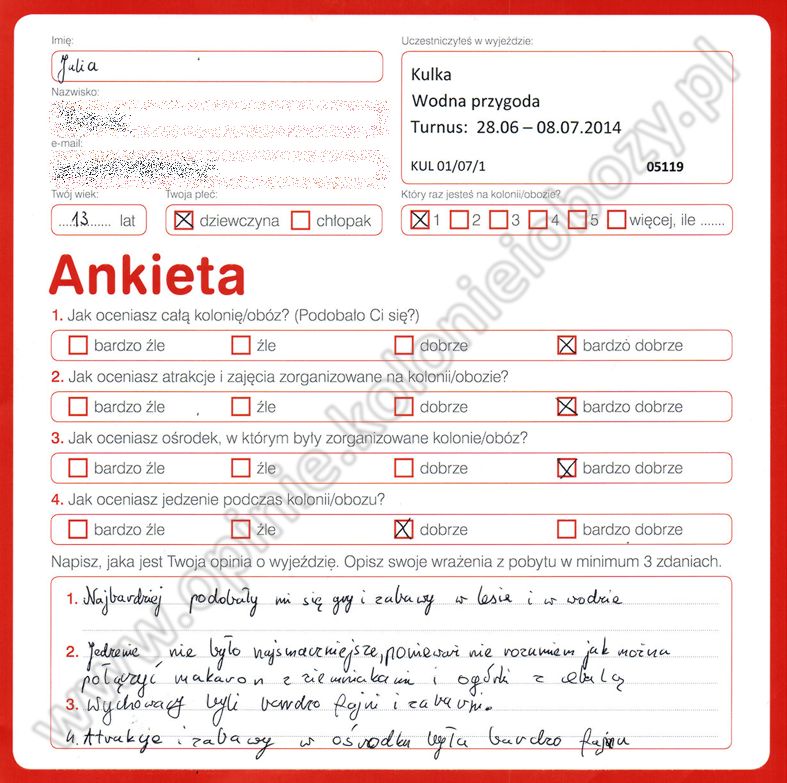 Imię:
Julia
Nazwisko:
e-mail:
Twój wiek:
13 lat
Twoja płeć:
dziewczyna chłopak
Uczestniczyłeś w wyjeździe:
Kulka
Wodna przygoda
Turnus: 28.06 – 08.07.2014
KUL 01/07/1 05119
Który raz jesteś na kolonii/obozie?
1 2 3 4 5 więcej, ile .......
Ankieta
1. Jak oceniasz całą kolonię/obóz? (Podobało Ci się?)
bardzo źle źle dobrze bardzo dobrze
2. Jak oceniasz atrakcje i zajęcia zorganizowane na kolonii/obozie?
bardzo źle źle dobrze bardzo dobrze
3. Jak oceniasz ośrodek, w którym były zorganizowane kolonie/obóz?
bardzo źle źle dobrze bardzo dobrze
4. Jak oceniasz jedzenie podczas kolonii/obozu?
bardzo źle źle dobrze bardzo dobrze
Napisz, jaka jest Twoja opinia o wyjeździe. Opisz swoje wrażenia z pobytu w minimum 3 zdaniach.
1. Najbardziej podobały mi się gry i zabawy w lesie i w wodzie
2. Jedzenie nie było najsmaczniejsze, ponieważ nie rozumiem jak można
połączyć makaron z ziemniakami i ogórki z cebulą
3. Wychowawcy byli bardzo fajni i zabawni.
4. Atrakcje i zabawy w ośrodku była bardzo fajna
www.opinie.kolonieiobozy.pl